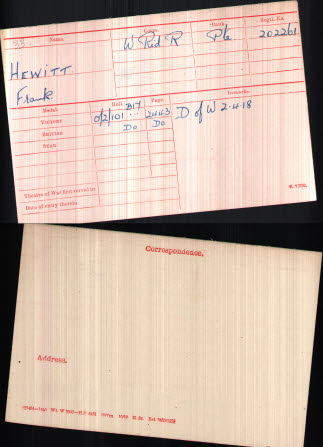 Name. Corps. Rank. Regtl. No.
HEWITT W Rid R Pte 202261
Frank
Medal. Roll. Page. Remarks.
VICTORY O/2/101 B17 2443 D of W 2.4.18
BRITISH Do Do
STAR
Theatre of War first served in
Date of entry therein
Correspondence.
Address.